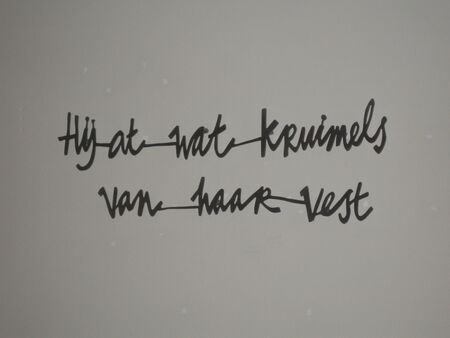 Hij at wat kruimels
van haar vest